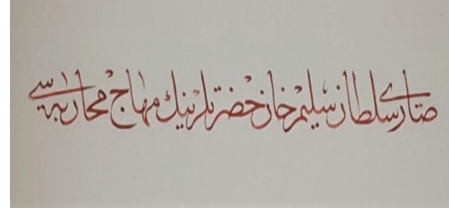 صاری سلطان سلیم خان حضرتلرینك مهاج محاربه‌سی